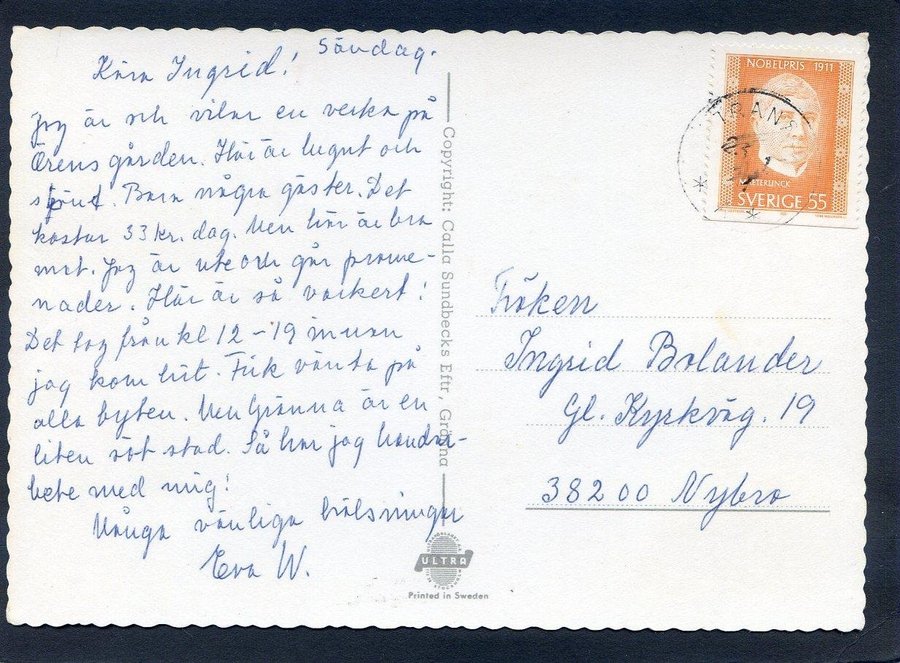 Söndag.
Kära Ingrid!
Jag är och vilar en vecka på
Örensgården. Här är lugnt och
skönt. Bara några gäster. Det
kostar 33 kr. dag. Men här är bra
mat. Jag är ute och går prome-
nader. Här är så vackert!
Det tog från kl 12-19 innan
jag kom hit. Fick vänta på
alla byten. Men Gränna är en
liten söt stad. Så har jag handar-
bete med mig!
Många vänliga hälsningar
Eva W.
Copyright: Calla Sundbecks Eftr, Gränna
ULTRA
Printed in Sweden
NOBELPRIS 1911
MAETERLINCK
SVERIGE 55
TRANÅS
Fröken
Ingrid Bolander
Gl. Kyrkväg. 19
38200 Nybro